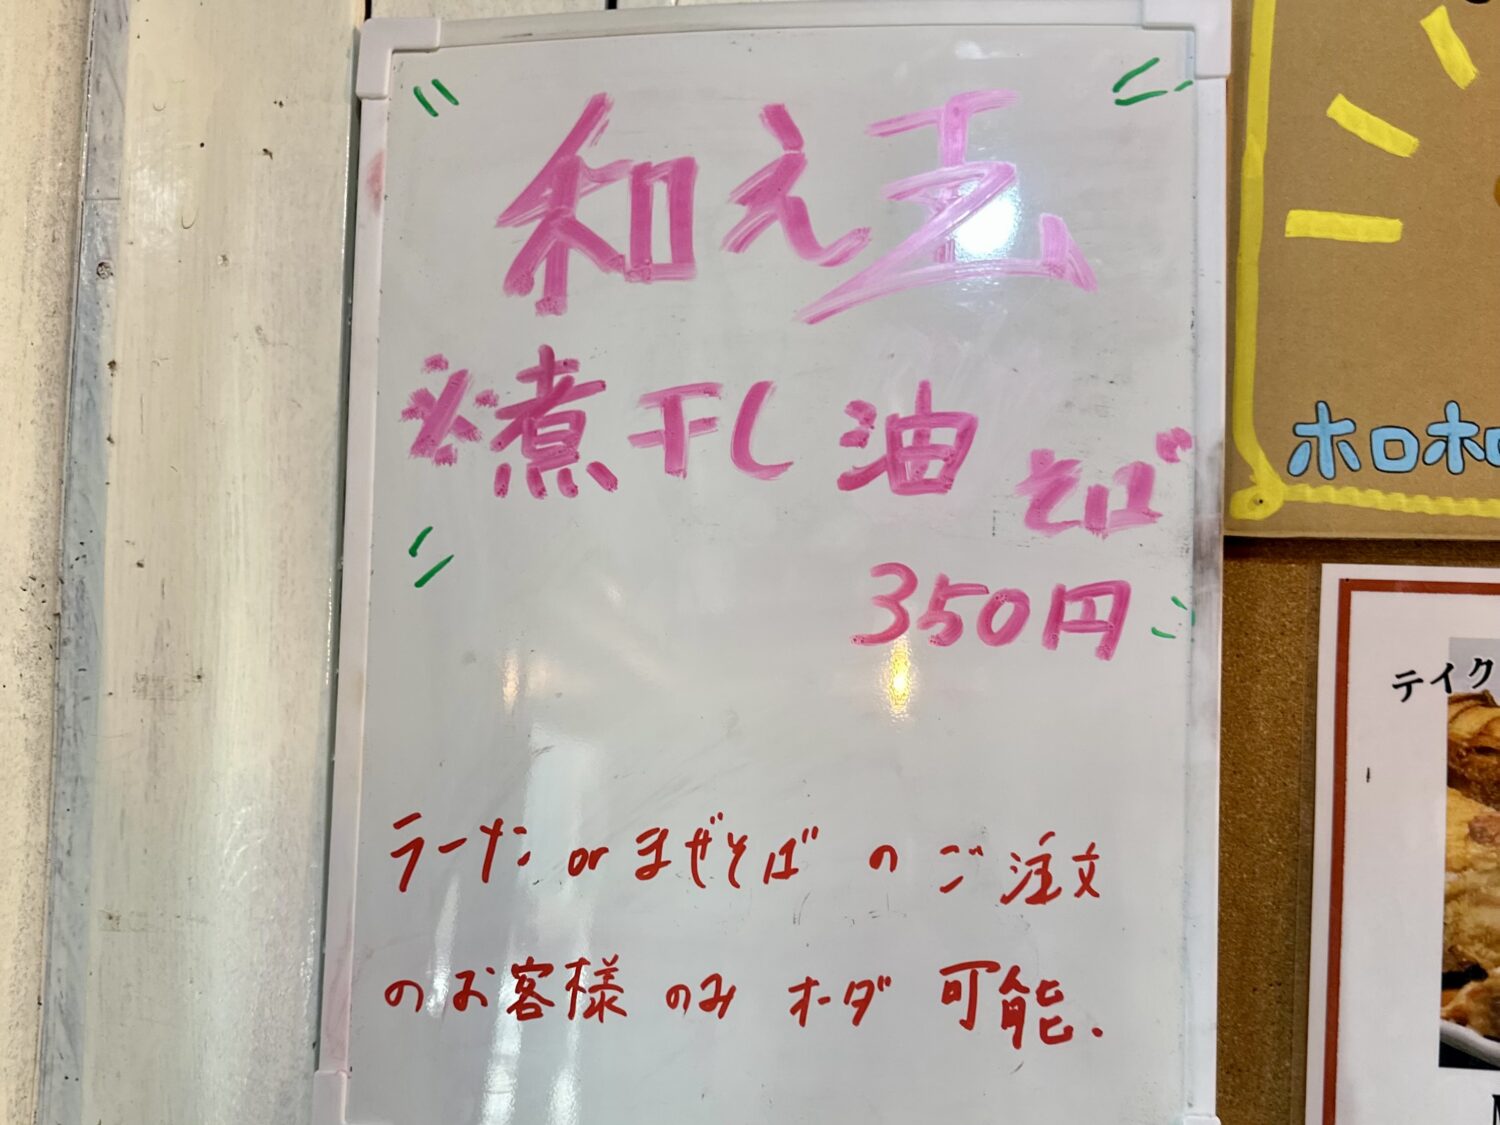 和え玉
※煮干し油そば
350円
ラーメン or まぜそば の ご注文
のお客様 のみ オーダ 可能.
ホロ和
テイク